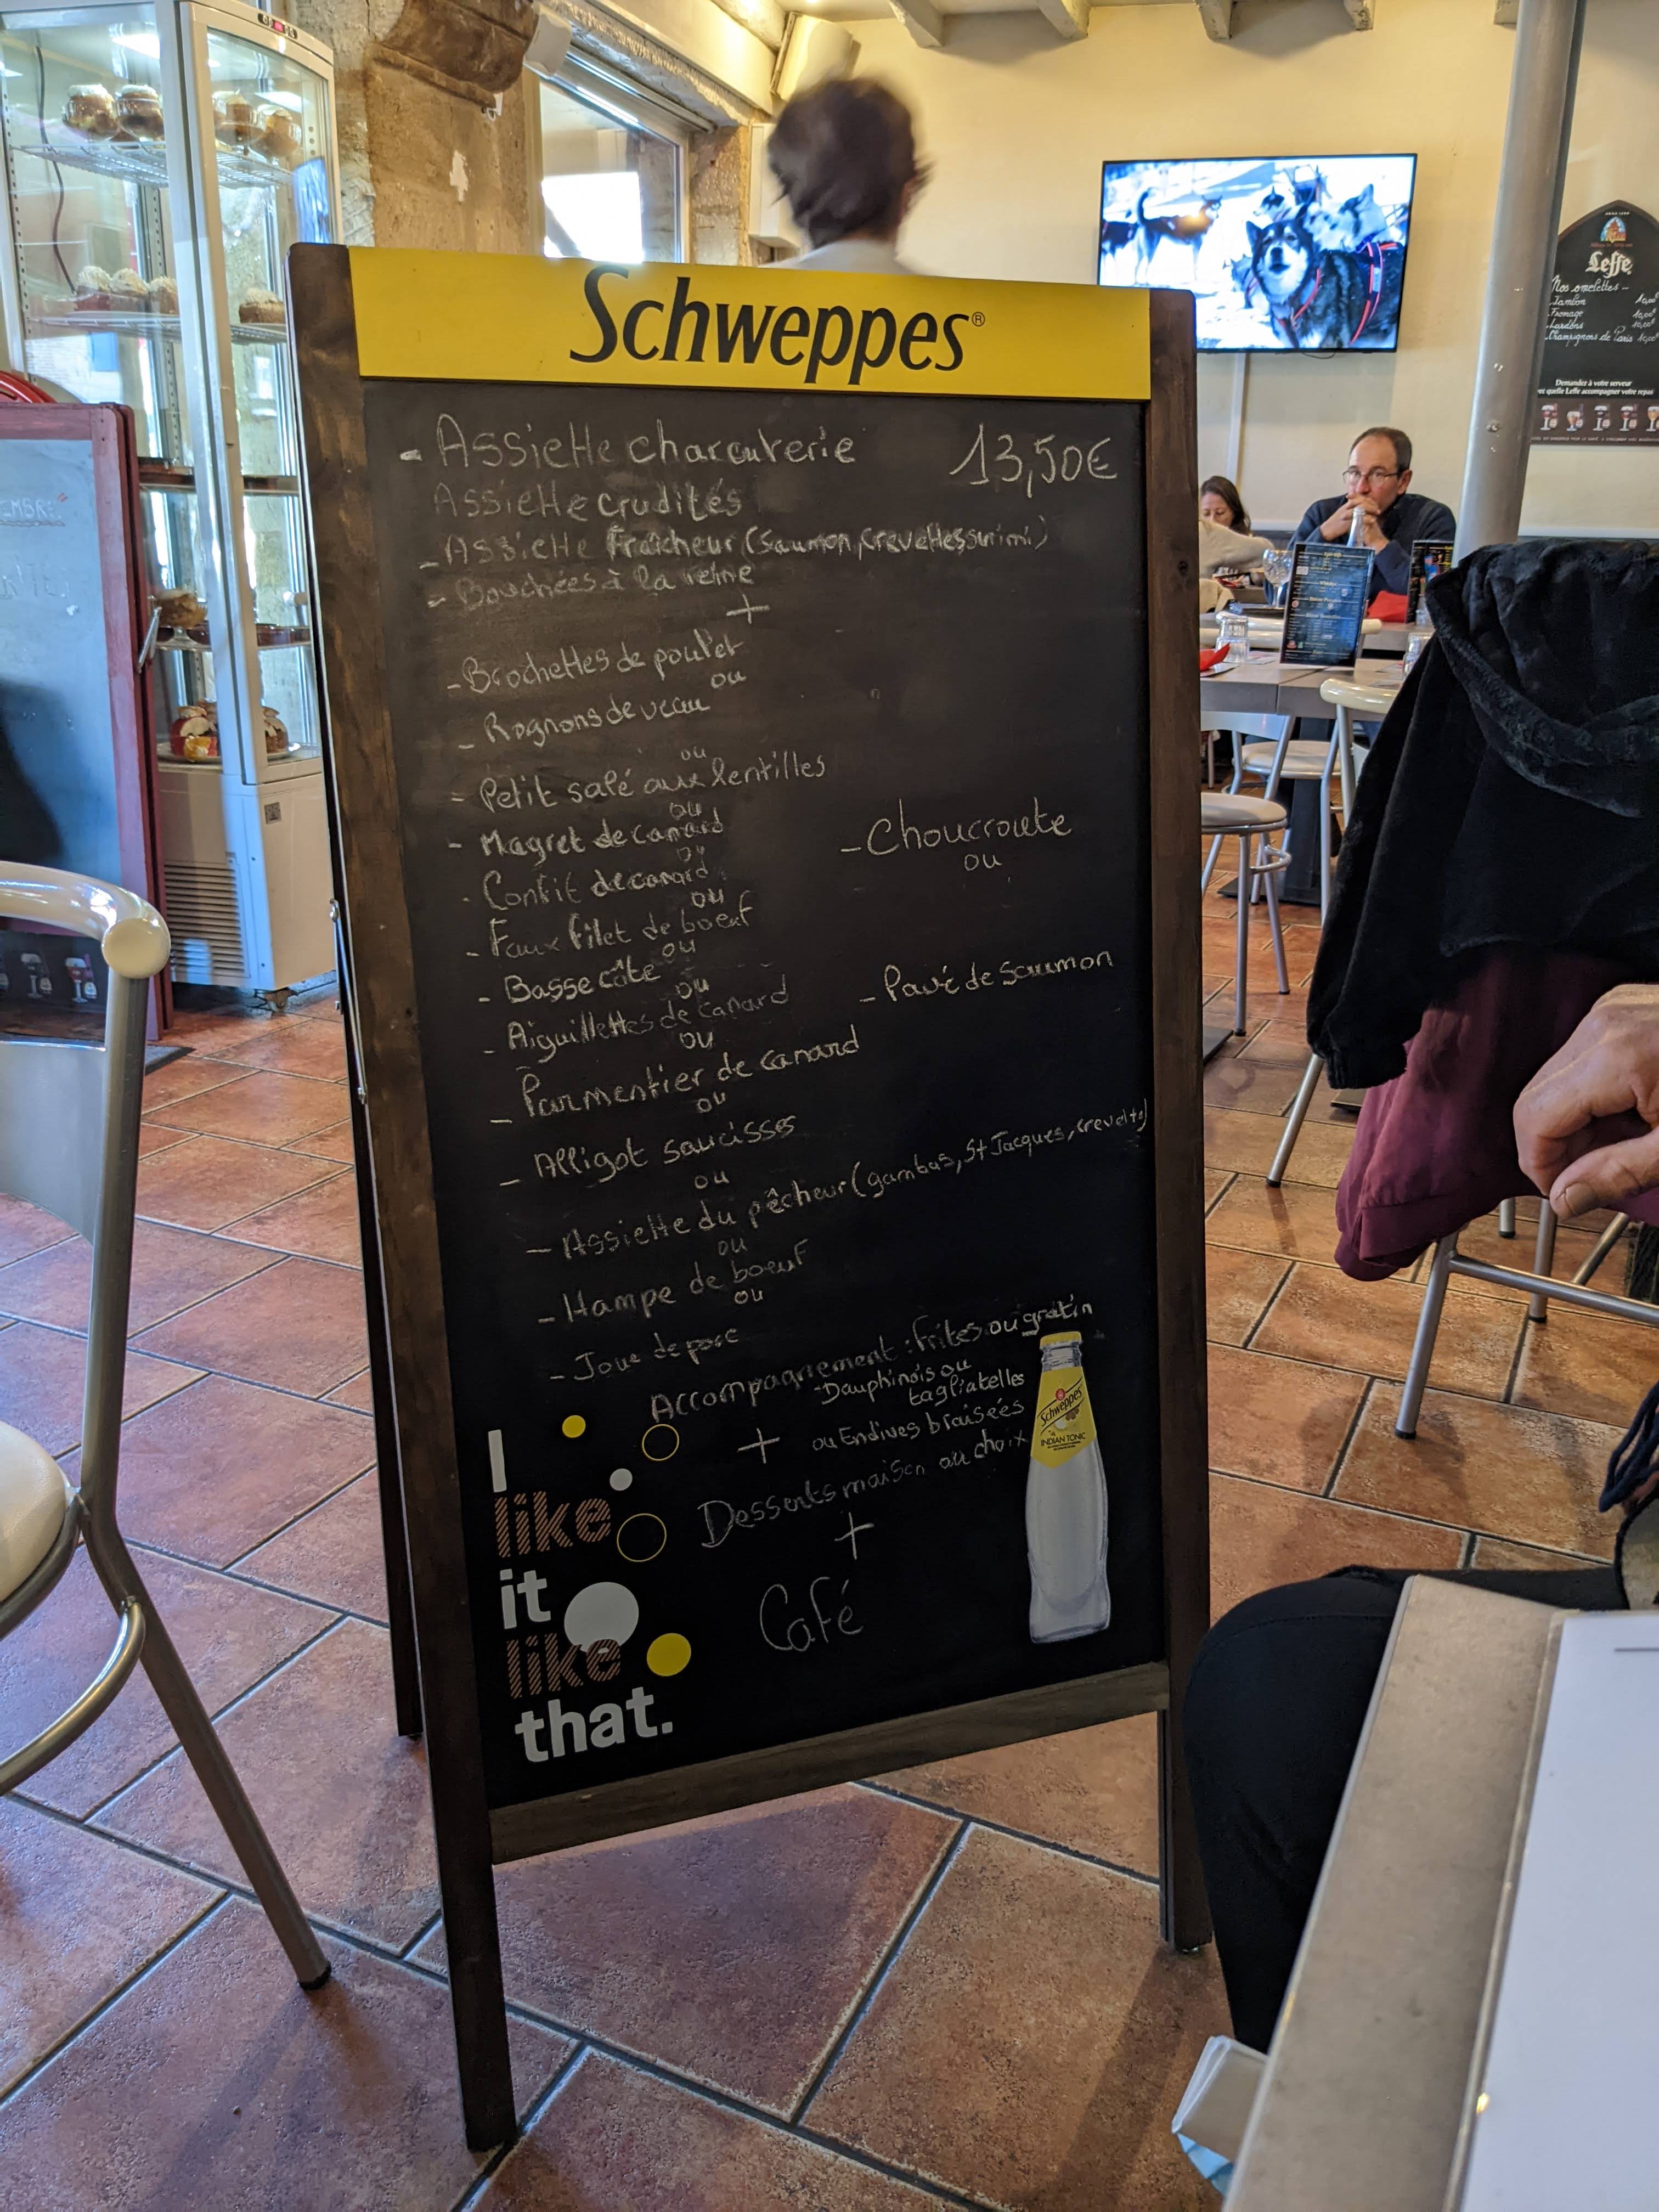 Schweppes®
- Assiette charcuterie 13,50€
Assiette crudités
- Assiette Fraîcheur (saumon, crevettes, surimi)
- Bouchées à la reine
+
- Brochettes de poulet
ou
- Rognons de veau
ou
- Petit salé aux lentilles
ou
- Magret de canard
ou
- Confit de canard
ou
- Faux filet de boeuf
ou
- Basse côte
ou
- Aiguillettes de canard
ou
- Parmentier de canard
ou
- Alligot saucisses
ou
- Assiette du pêcheur (gambas, St Jacques, crevette)
ou
- Hampe de boeuf
ou
- Joue de porc
- Choucroute
ou
- Pavé de saumon
Accompagnement : frites ou gratin
Dauphinois ou
tagliatelles
+ ou Endives braisées
Desserts maison au choix
+
Café
I
like
it
like
that.
Schweppes
INDIAN TONIC
Leffe
Nos omelettes -
- Jambon 10,00€
- Fromage 10,00€
- Lardons 10,00€
- Champignons de Paris 10,00€
Demandez à votre serveur
quelle Leffe accompagner votre repas
EMBRE